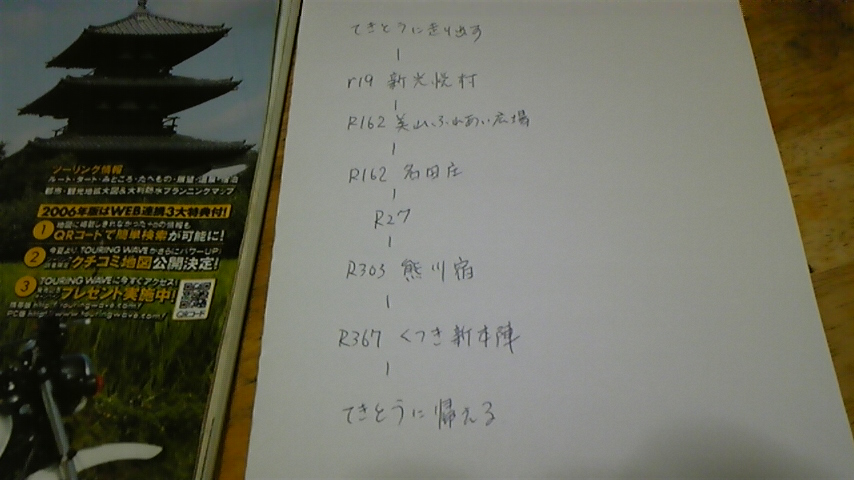 ツーリング情報
ルート・ダート・みどころ・たべもの・展望
都市・観光地拡大図&大判防水プランニングマップ
2006年版はWEB連携3大特典付!
1
地図に掲載しきれなかった+αの情報も
QRコードで簡単検索が可能に!
2
今夏より、TOURING WAVEがさらにパワーUP!
クチコミ地図公開決定!
3
TOURING WAVEに今すぐアクセス!
プレゼント実施中!
QRコード
PC版 http://www.touringwave.com/
てきとうに走り出す
r19 新光悦村
R162 美山ふれあい広場
R162 名田庄
R27
R303 熊川宿
R367 くつき新本陣
てきとうに帰える